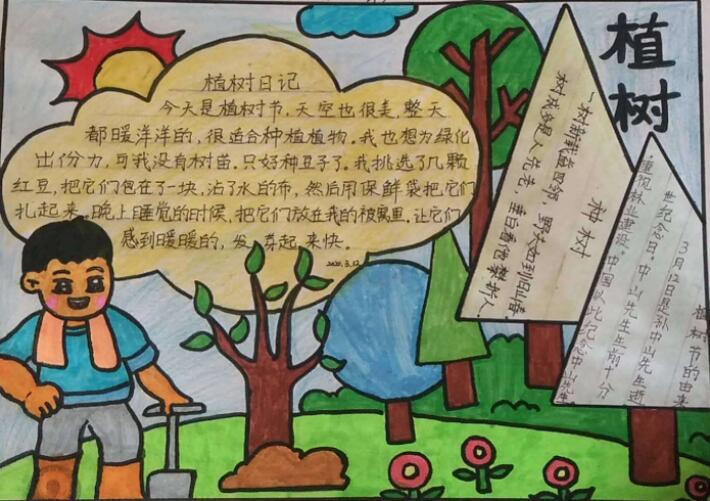 植树
植树日记
今天是植树节，天空也很走，整天
都暖洋洋的，很适合种植植物。我也想为绿化
出份力，可我没有树苗。只好种豆子了。我挑选了几颗
红豆，把它们包在了一块，沾了水的布，然后用保鲜袋把它们
扎起来。晚上睡觉的时候，把它们放在我的被窝里。让它们
感到暖暖的，发芽起来快。
2020.3.12
种树
一树新栽益四邻，野夫如到旧山春
树成多是人先老，垂白看他攀折人
植树节的由来
3月12日是孙中山先生逝
世纪念日。中山先生生前十分
重视林业建设。中国以此纪念中山先生